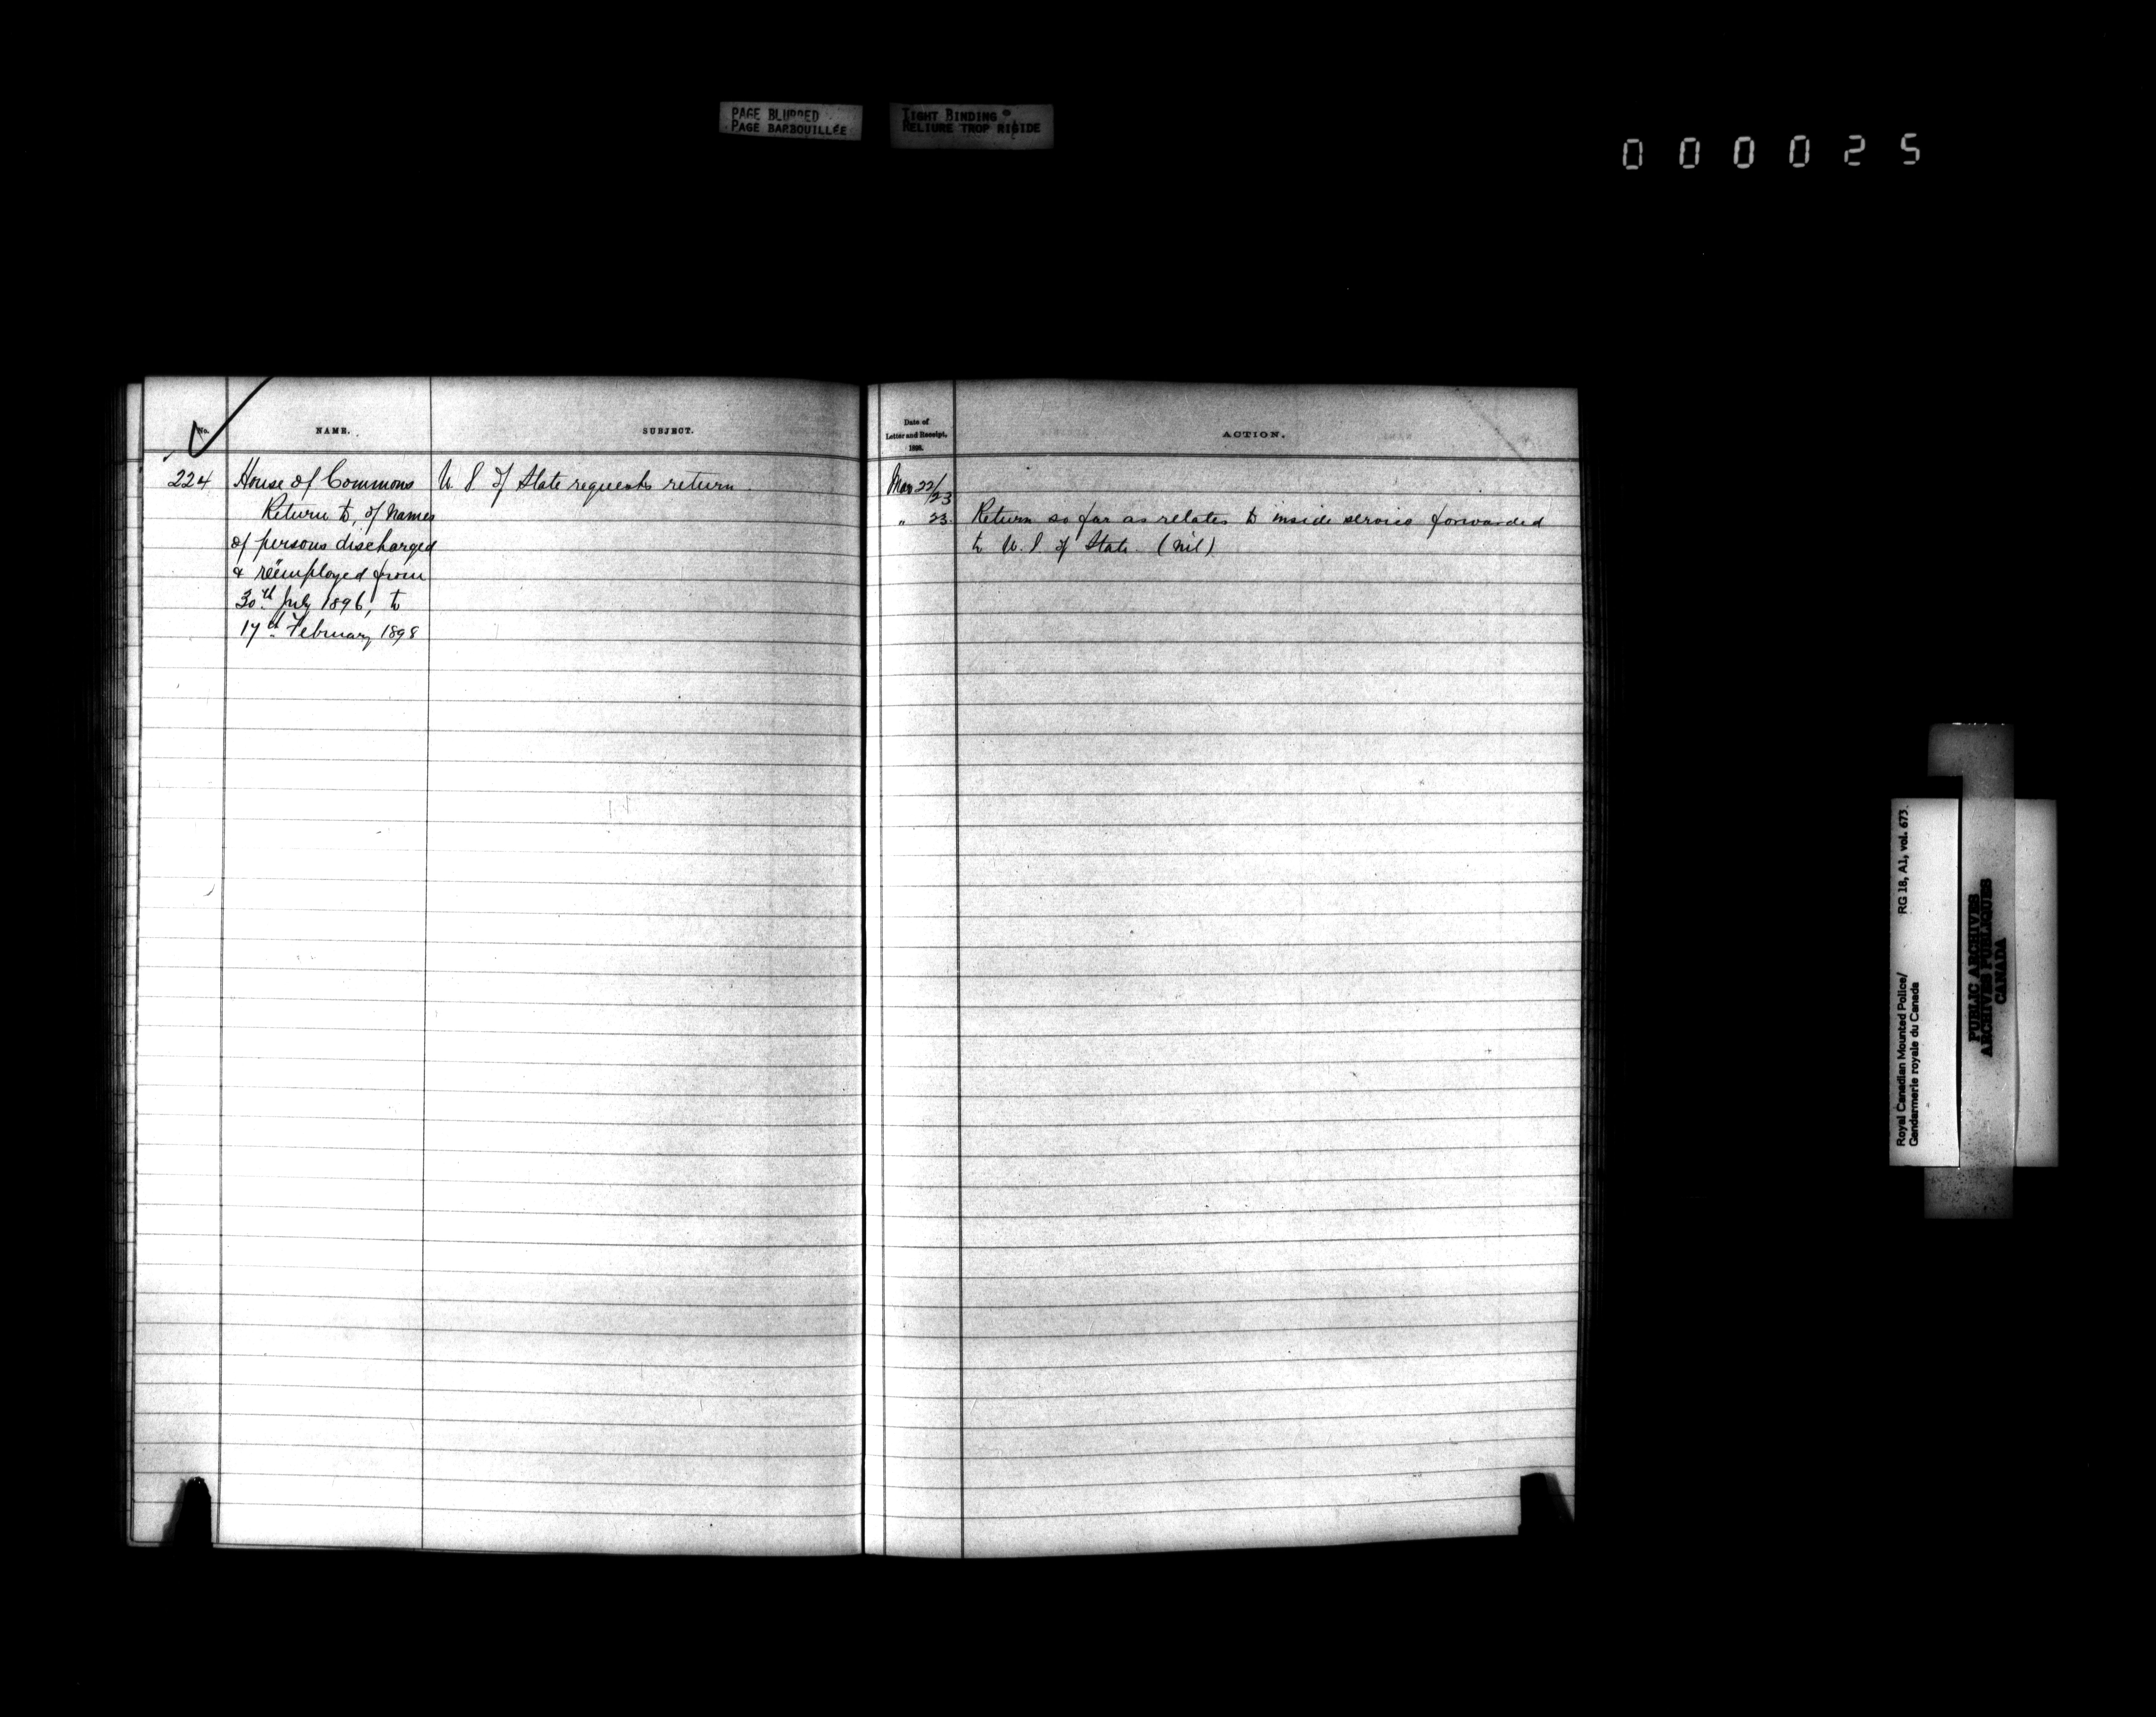 PAGE BLURRED
PAGE BARBOUILLÉE
TIGHT BINDING
RELIURE TROP RIGIDE
000025
No.
NAME.
SUBJECT.
Date of
Letter and Receipt.
1898.
ACTION.
224
House of Commons
Return to, of names
of persons discharged
& reëmployed from
30th July 1896, to
17th February 1898
U. S. of State requests return
Mar 22/23
" 23.
Return so far as relates to inside service forwarded
to U. S. of State. (nil)
Royal Canadian Mounted Police/ RG 18, A1, vol. 673.
Gendarmerie royale du Canada
PUBLIC ARCHIVES
ARCHIVES PUBLIQUES
CANADA